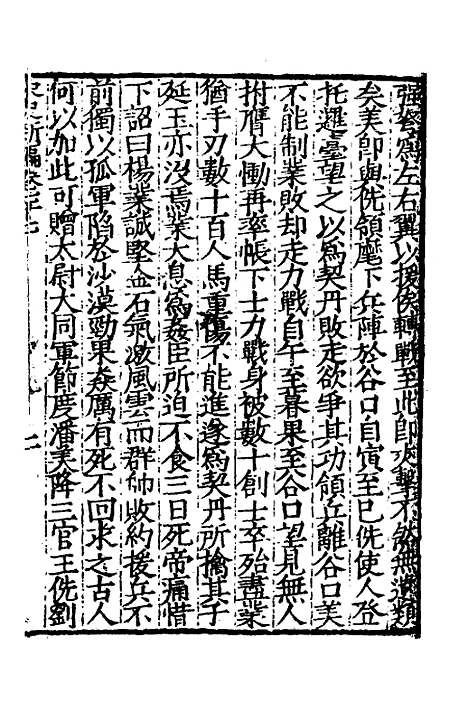 強弩爲左右翼以援俟轉戰至此即夾擊不然無遺類
矣美即與侁領麾下兵陣於谷口自寅至巳侁使人登
托邏臺望之以爲契丹敗走欲爭其功領兵離谷口美
不能制業敗却走力戰自午至暮果至谷口望見無人
拊膺大慟再率帳下士力戰身被數十創士卒殆盡業
猶手刃數十百人馬重傷不能進遂爲契丹所擒其子
延玉亦沒焉業太息爲姦臣所迫不食三日死帝痛惜
下詔曰楊業誠堅金石氣激風雲而群帥敗約援兵不
前獨以孤軍陷於沙漠勁果猋厲有死不回求之古人
何以加此可贈太尉大同軍節度潘美降三官王侁劉
宋史新編卷